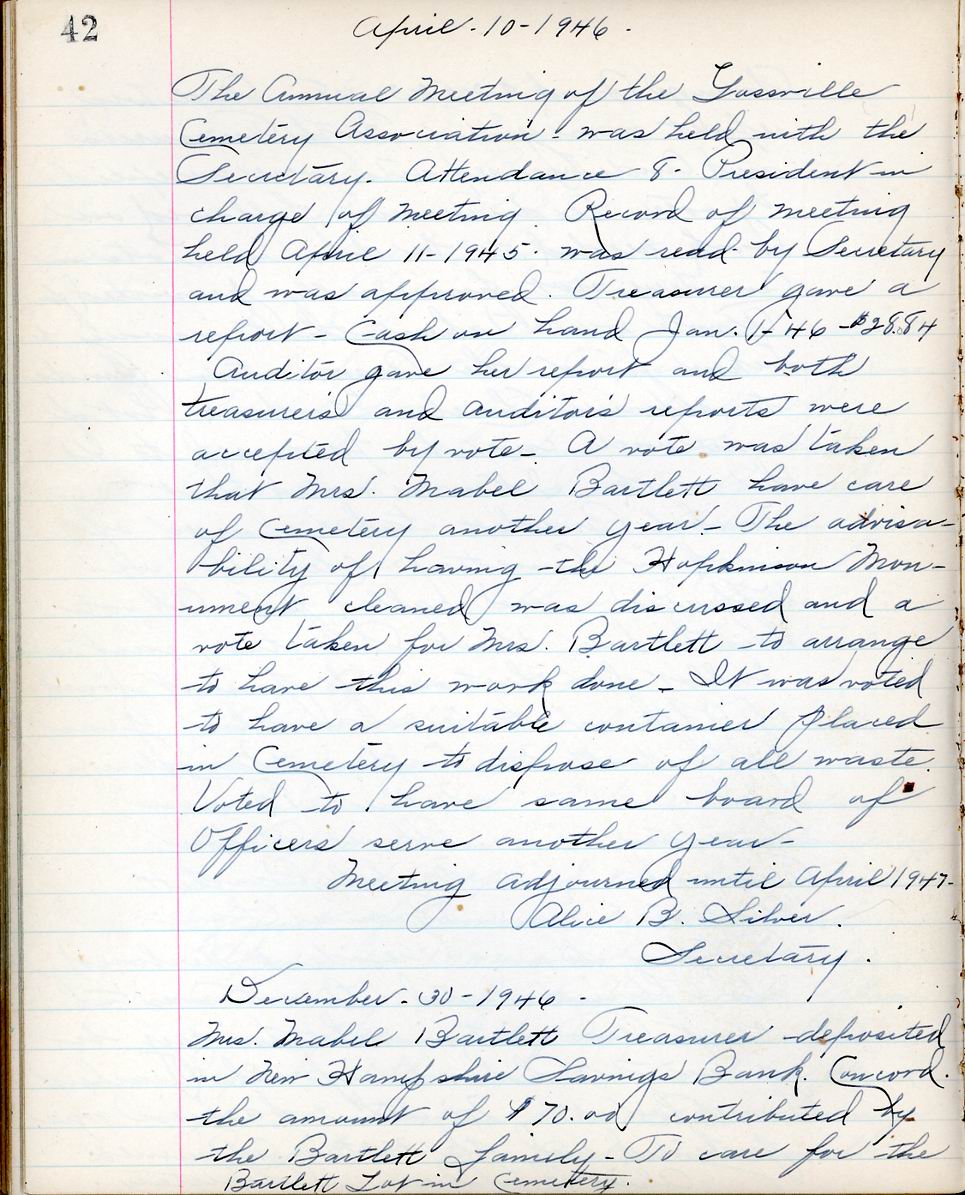 42
April. 10-1946.
The Annual Meeting of the Gossville
Cemetery Association - was held with the
Secretary. Attendance 8. President in
charge of meeting Record of meeting
held April 11-1945. was read by Secretary
and was approved. Treasurer gave a
report - Cash on hand Jan. 1-46 - $28.84
Auditor gave her report and both
treasurer's and auditor's reports were
accepted by vote - A vote was taken
that Mrs. Mabel Bartlett have care
of Cemetery another year - The advisa-
bility of having - the Hopkinson Mon-
ument cleaned was discussed and a
vote taken for Mrs. Bartlett to arrange
to have this work done - It was voted
to have a suitable container placed
in Cemetery to dispose of all waste.
Voted to have same board of
Officers serve another year -
Meeting adjourned until April 1947-
Alice B. Silver.
Secretary.
December. 30-1946 -
Mrs. Mabel Bartlett Treasurer deposited
in New Hampshire Savings Bank. Concord.
the amount of $70.00 contributed by
the Bartlett family - To care for the
Bartlett Lot in Cemetery.